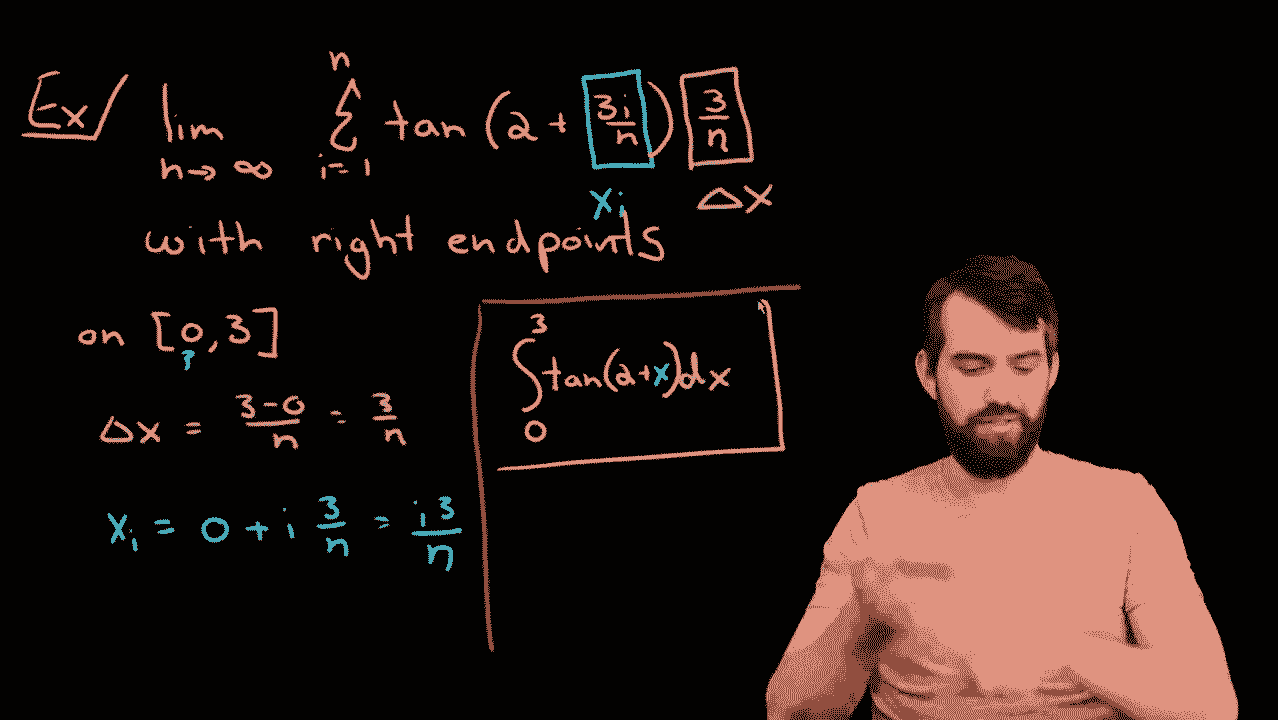 Ex/ lim n→∞ n Σ i=1 tan (2 + 3i/n) 3/n
xi Δx
with right endpoints
on [0,3]
?
Δx = 3-0/n = 3/n
xi = 0 + i 3/n = i3/n
3 ∫ 0 tan(2+x)dx